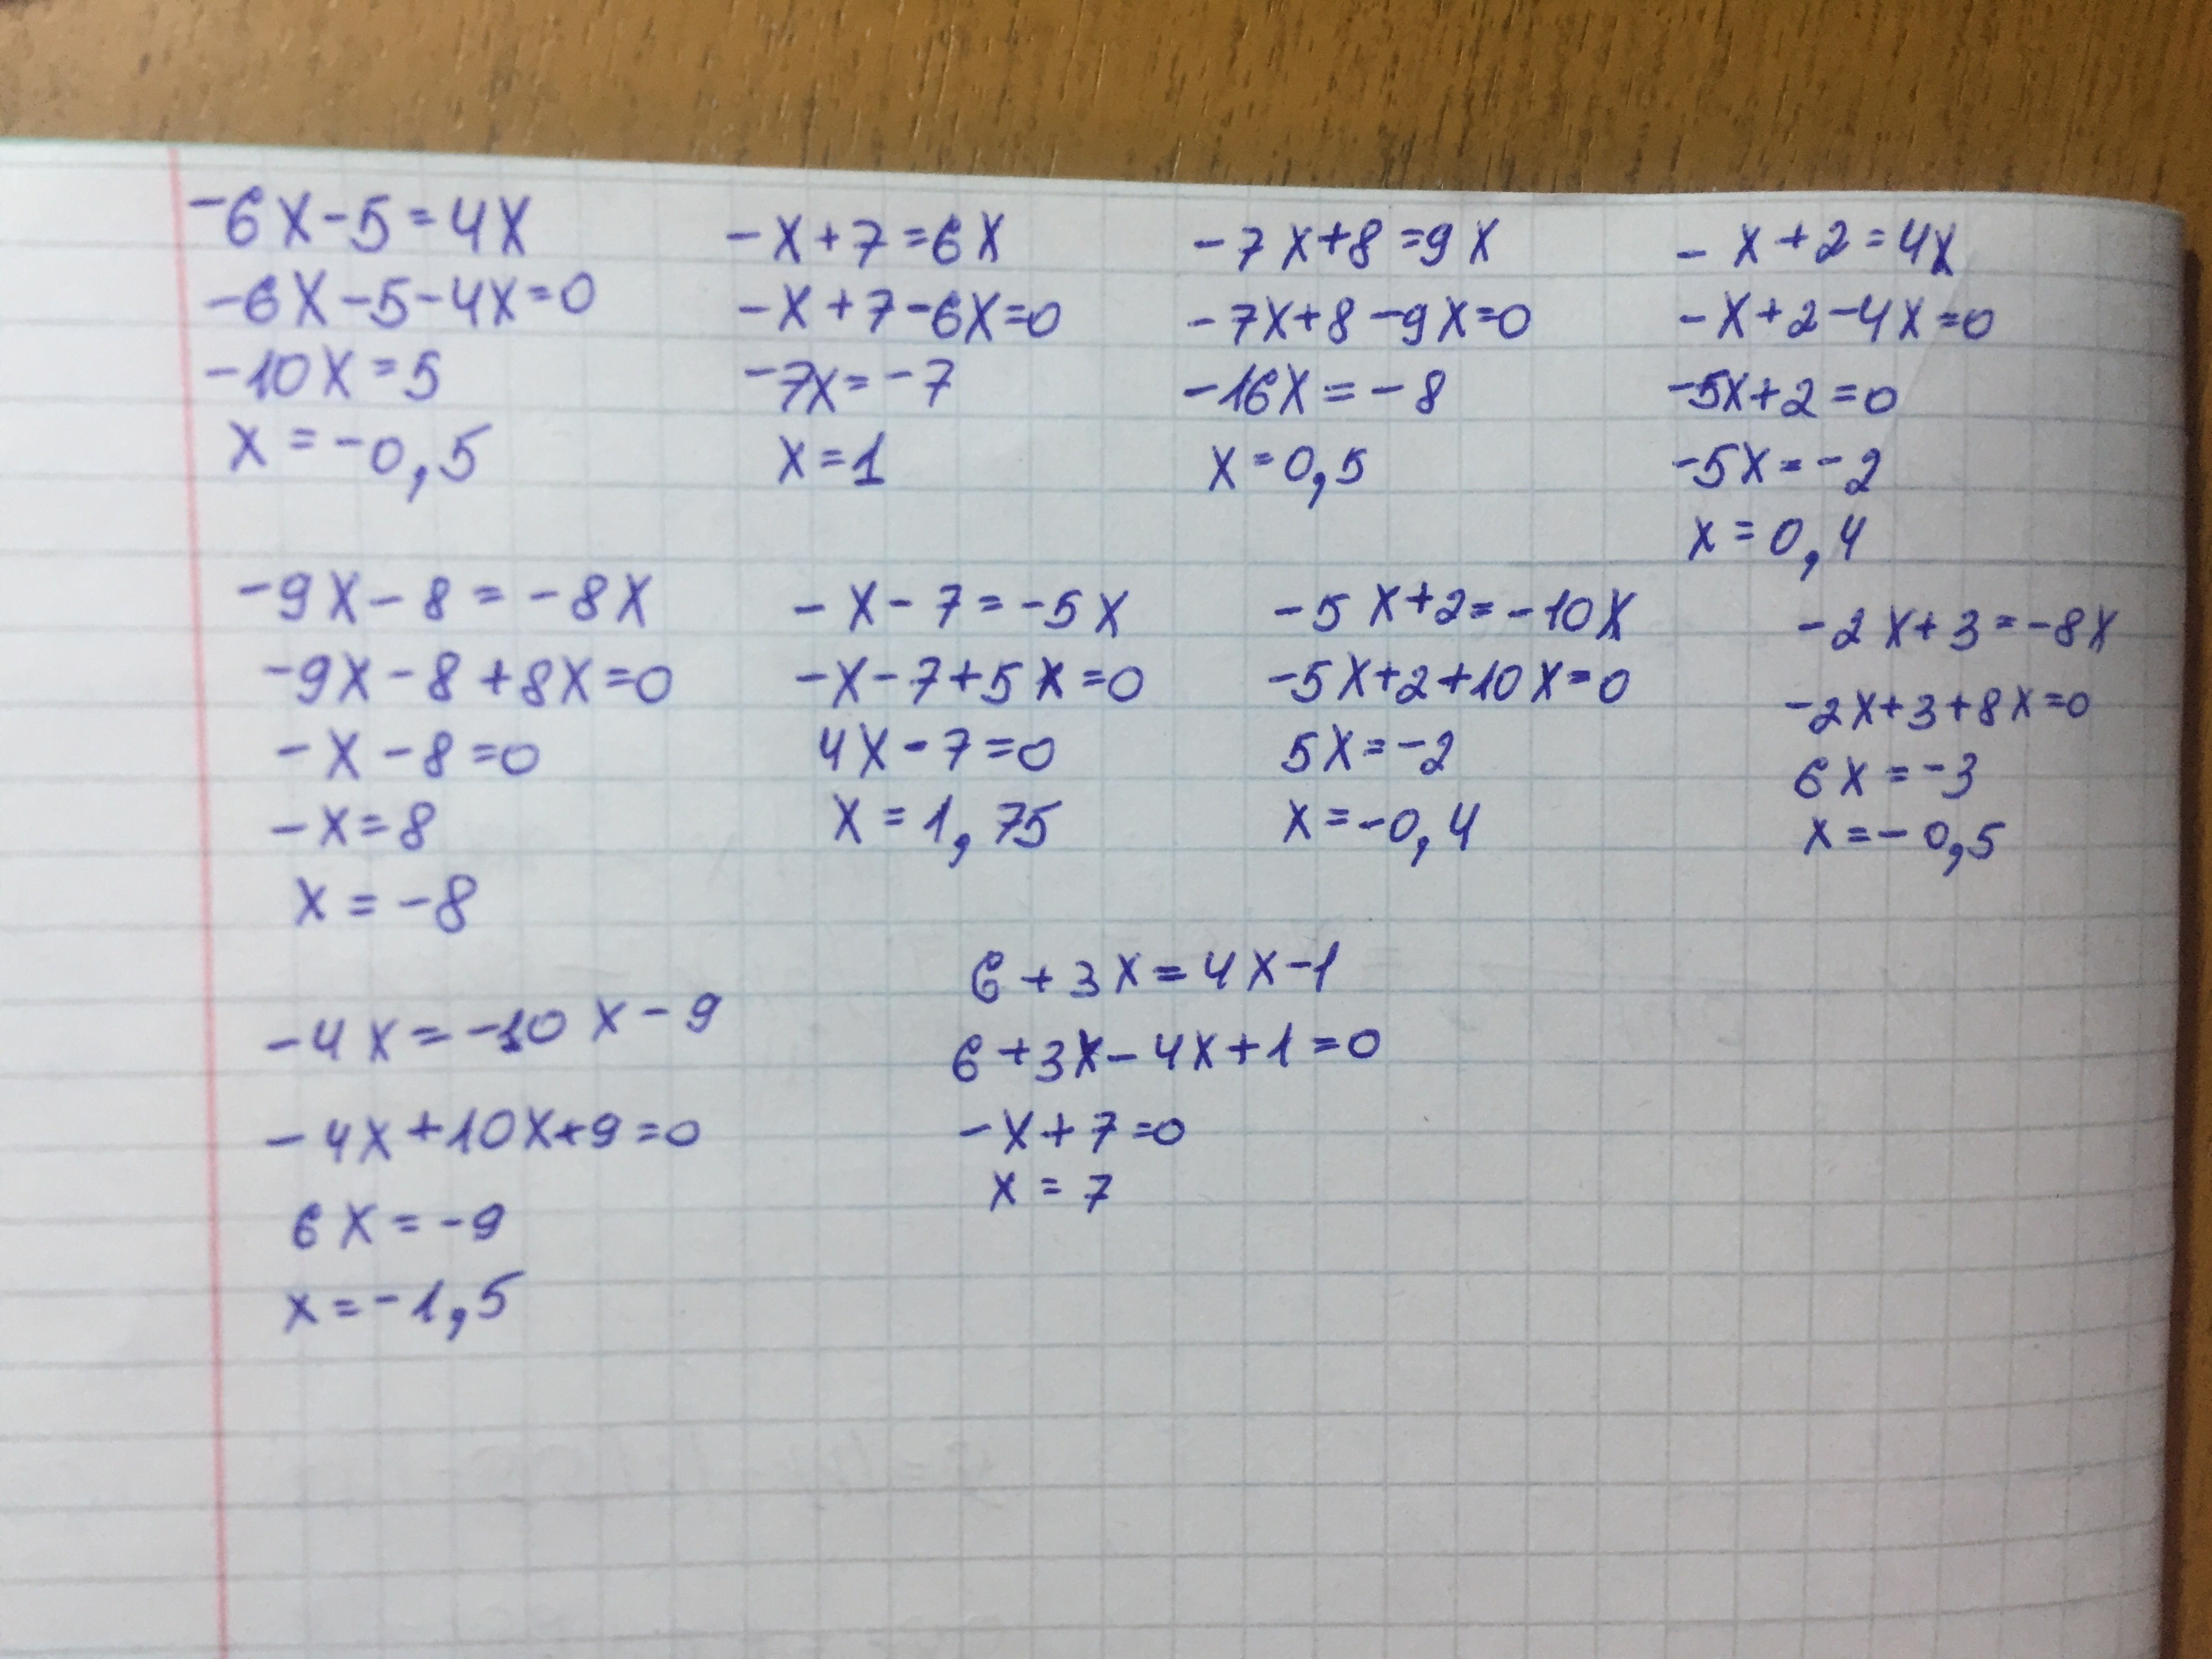 -6x-5=4x
-6x-5-4x=0
-10x=5
x=-0,5
-x+7=6x
-x+7-6x=0
-7x=-7
x=1
-7x+8=9x
-7x+8-9x=0
-16x=-8
x=0,5
-x+2=4x
-x+2-4x=0
-5x+2=0
-5x=-2
x=0,4
-9x-8=-8x
-9x-8+8x=0
-x-8=0
-x=8
x=-8
-x-7=-5x
-x-7+5x=0
4x-7=0
x=1,75
-5x+2=-10x
-5x+2+10x=0
5x=-2
x=-0,4
-2x+3=-8x
-2x+3+8x=0
6x=-3
x=-0,5
-4x=-10x-9
-4x+10x+9=0
6x=-9
x=-1,5
6+3x=4x-1
6+3x-4x+1=0
-x+7=0
x=7